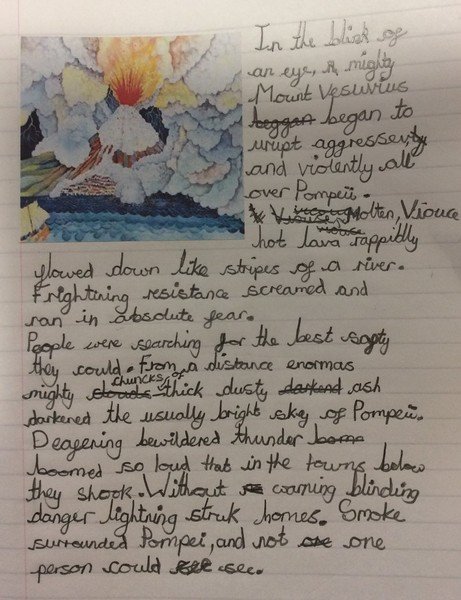 In the blink of
an eye, a mighty
Mount Vesuvius
beggan began to
urupt aggressevity
and violently all
over Pompeii.
Molten, Viouce
hot lava rappidly
flowed down like stripes of a river.
Frightning resistance screamed and
ran in absolute fear.
People were searching for the best safty
they could. From a distance enormas
mighty clouds chuncks of thick dusty darkend ash
darkened the usually bright sky of Pompeii.
Deafening bewildered thunder
boomed so loud that in the towns below
they shook. Without warning blinding
danger lightning struk homes. Smoke
surrounded Pompei, and not one
person could see see.